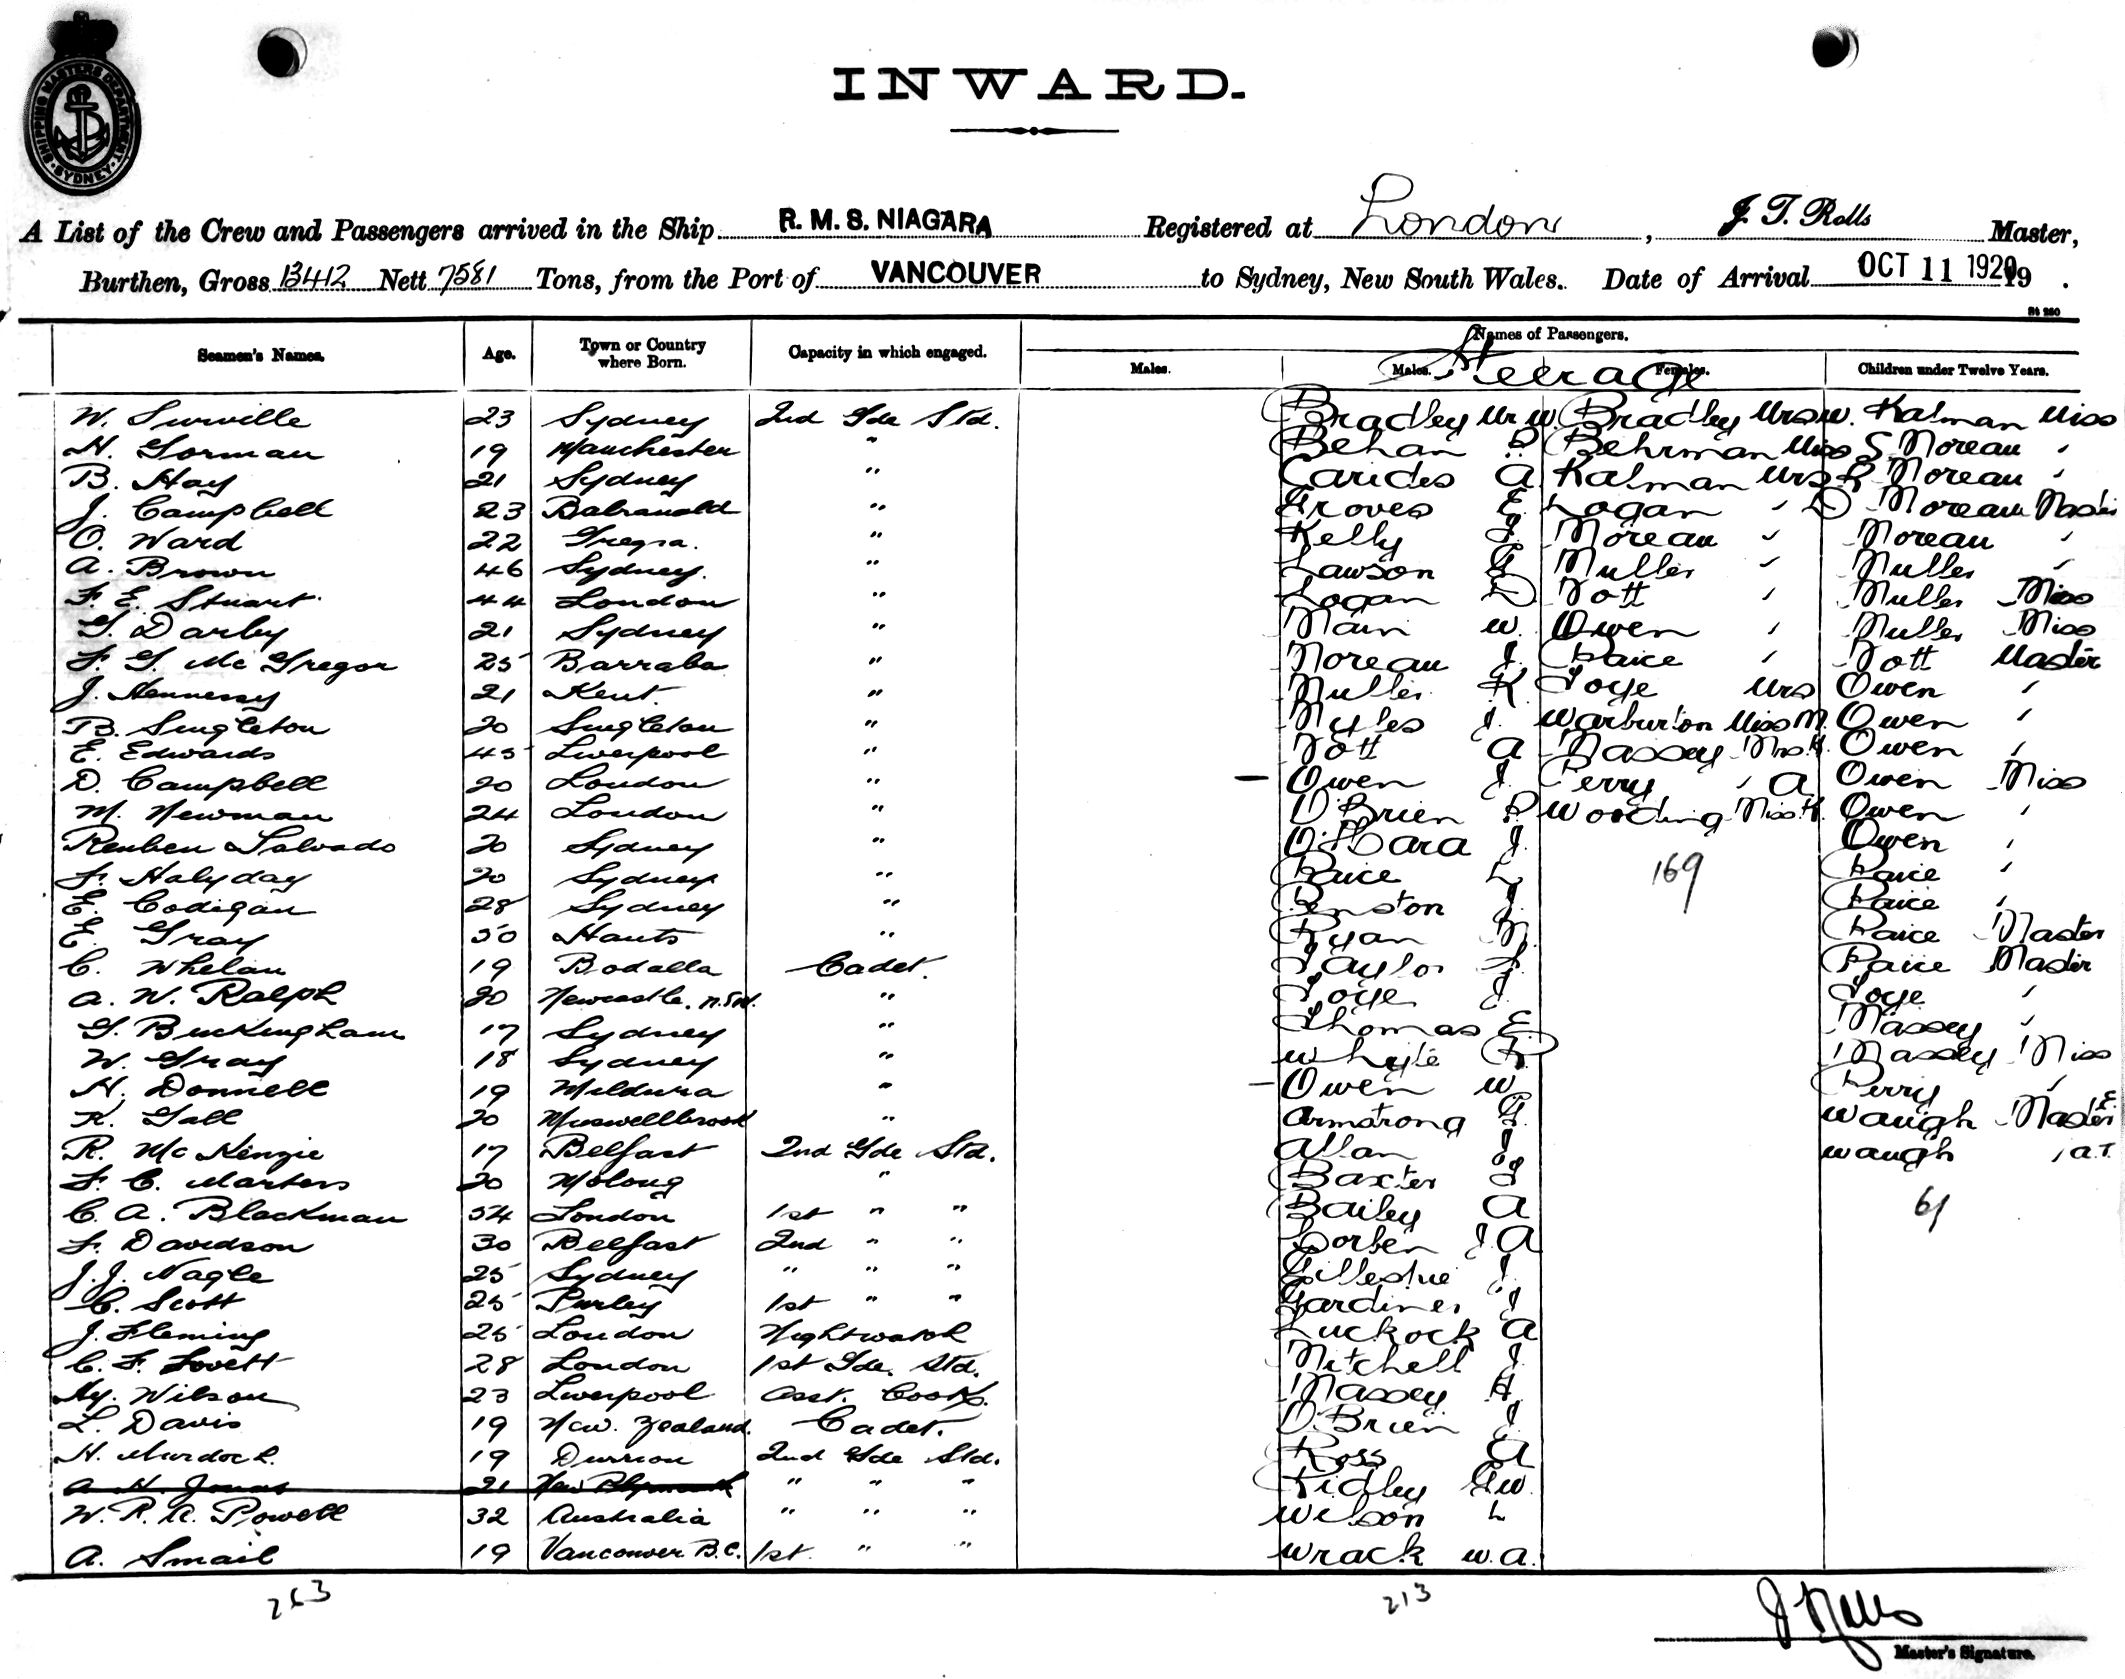 SHIPPING MASTERS DEPARTMENT. SYDNEY.
INWARD.
A List of the Crew and Passengers arrived in the Ship R. M. S. NIAGARA Registered at London, J. T. Rolls Master,
Burthen, Gross 13412 Nett 7581 Tons, from the Port of VANCOUVER to Sydney, New South Wales. Date of Arrival OCT 11 1920 19 .
St 280
Seamen's Names. Age. Town or Country where Born. Capacity in which engaged. Names of Passengers.
Males. Males. Females. Children under Twelve Years.
Steerage
W. Surville 23 Sydney 2nd Gde Std. Bradley Mr W. Bradley Mrs W. Kalman Miss
H. Gorman 19 Manchester " Behan P. Behrman Miss S Moreau "
B. Hay 21 Sydney " Carides A Kalman Mrs R Moreau "
J. Campbell 23 Balranald " Groves E. Logan " D Moreau Master
O. Ward 22 " Kelly J. Moreau " Moreau "
A. Brown 46 Sydney. " Lawson G Muller " Muller "
F. E. Stuart 44 London " Logan D Nott " Muller Miss
G. Darby 21 Sydney " Main W. Owen " Muller Miss
F. G. Mc Gregor 25 Barraba " Moreau J. Paice " Nott Master
J. Hennessy 21 Kent. " Muller K Toye Mrs Owen "
B. Singleton 20 Singleton " Myles J. Warburton Miss M. Owen "
E. Edwards 45 Liverpool " Nott A Massey Mrs H. Owen "
D. Campbell 20 London " — Owen J. Perry " A Owen Miss
M. Newman 24 London " O'Brien P. Wooding Miss H. Owen "
Reuben Salvado 20 Sydney " O'Hara J. Owen "
F. Halyday 20 Sydney " Paice L 169 Paice "
E. Codigan 28 Sydney " Penston J. Paice "
E. Gray 50 Hants " Ryan M. Paice Master
C. Whelan 19 Bodalla Cadet. Taylor Paice Master
A. W. Ralph 20 Newcastle. N.S.W. " Toye J. Toye "
G. Buckingham 17 Sydney " Thomas E. Massey "
W. Gray 18 Sydney " Whyte R Massey Miss
H. Donnell 19 Mildura " — Owen W. Perry "
K. Gall 20 Muswellbrook " Armstrong G. Waugh Master E.
R. Mc Kenzie 17 Belfast 2nd Gde Std. Allan J Waugh " A.T.
F. C. Martens 20 Molong " Baxter J
C. A. Blackman 54 London 1st " " Bailey A 61
F. Davidson 30 Belfast 2nd " " Corben J. A
J. J. Nagle 25 Sydney " " " Gillespie J.
C. Scott 25 Purley 1st " " Gardiner J
J. Fleming 25 London Nightwatch Luckock A
C. F. Lovett 28 London 1st Gde. Std. Mitchell J.
Hy. Wilson 23 Liverpool Asst. Cook. Massey H.
L. Davis 19 New. Zealand. Cadet. O'Brien J.
H. Murdoch. 19 2nd Gde Std. Ross A
A. H. Jonas 21 New Plymouth " " " Ridley G.W.
W. R. A. Powell 32 Australia " " " Wilson L
A. Smail 19 Vancouver B.C. 1st " " Wrack W.A.
263 213
J Rolls
Master's Signature.